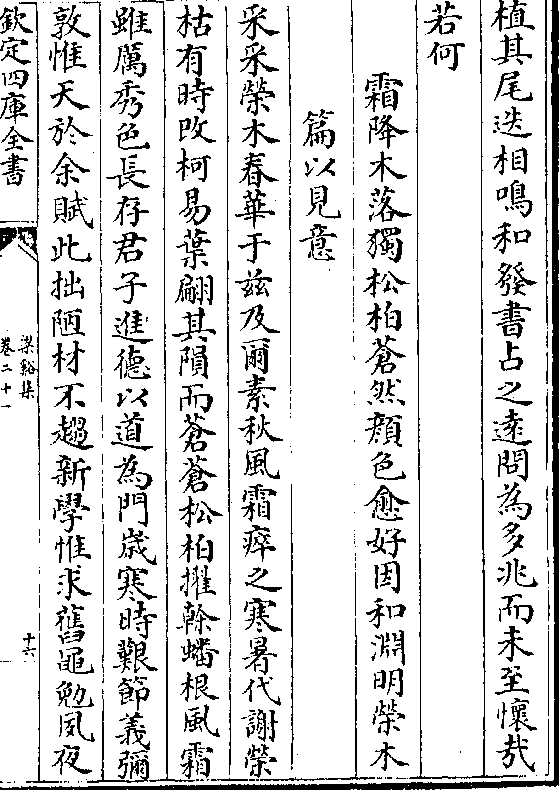 植其尾迭相鳴和發書占之遠問為多兆而未至懷哉
若何
霜降木落獨松柏蒼然顔色愈好因和淵明榮木
篇以見意
采采榮木春華于兹及爾素秋風霜瘁之寒暑代謝榮
枯有時改柯易葉翩其隕而蒼蒼松柏擢幹蟠根風霜
雖厲秀色長存君子進德以道為門歲寒時艱節義彌
敦惟天於余賦此拙陋材不趨新學惟求舊黽勉夙夜
欽定四庫全書
梁谿集
卷二十一
十六